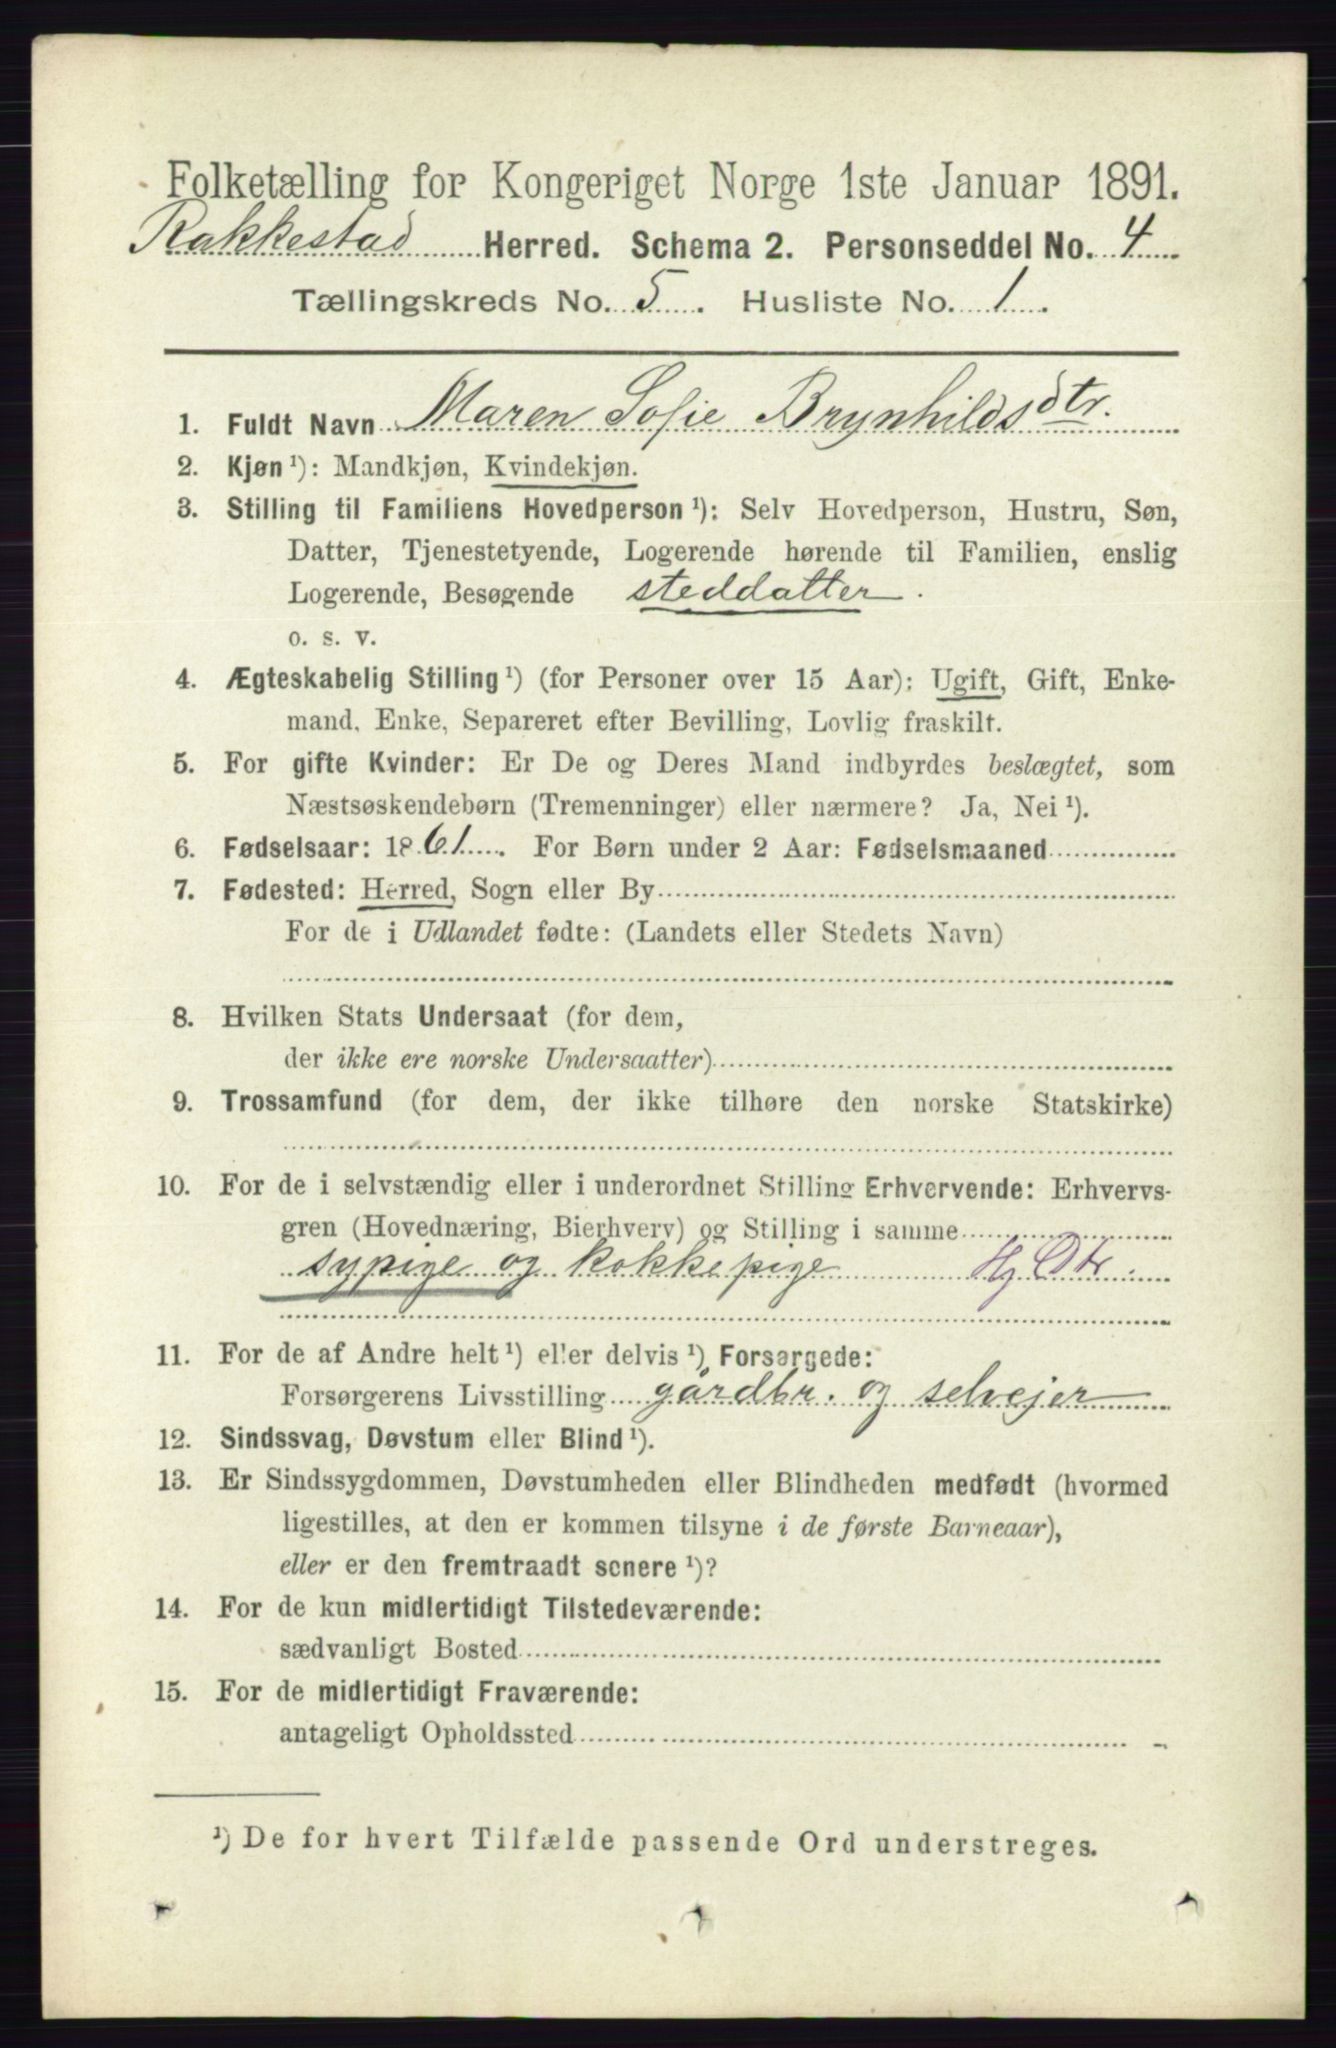 Folketælling for Kongeriget Norge 1ste Januar 1891.
Rakkestad Herred. Schema 2. Personseddel No. 4
Tællingskreds No. 5. Husliste No. 1.
1. Fuldt Navn Maren Sofie Brynhildsdtr.
2. Kjøn ¹): Mandkjøn, Kvindekjøn.
3. Stilling til Familiens Hovedperson ¹): Selv Hovedperson, Hustru, Søn,
Datter, Tjenestetyende, Logerende hørende til Familien, enslig
Logerende, Besøgende steddatter.
o. s. v.
4. Ægteskabelig Stilling ¹) (for Personer over 15 Aar): Ugift, Gift, Enke-
mand, Enke, Separeret efter Bevilling, Lovlig fraskilt.
5. For gifte Kvinder: Er De og Deres Mand indbyrdes beslægtet, som
Næstsøskendebørn (Tremenninger) eller nærmere? Ja, Nei ¹).
6. Fødselsaar: 1861. For Børn under 2 Aar: Fødselsmaaned
7. Fødested: Herred, Sogn eller By
For de i Udlandet fødte: (Landets eller Stedets Navn)
8. Hvilken Stats Undersaat (for dem,
der ikke ere norske Undersaatter)
9. Trossamfund (for dem, der ikke tilhøre den norske Statskirke)
10. For de i selvstændig eller i underordnet Stilling Erhvervende: Erhvervs-
gren (Hovednæring, Bierhverv) og Stilling i samme
sypige og kokkepige Hj Dtr.
11. For de af Andre helt ¹) eller delvis ¹) Forsørgede:
Forsørgerens Livsstilling gårdbr. og selvejer
12. Sindssvag, Døvstum eller Blind ¹).
13. Er Sindssygdommen, Døvstumheden eller Blindheden medfødt (hvormed
ligestilles, at den er kommen tilsyne i de første Barneaar),
eller er den fremtraadt senere ¹)?
14. For de kun midlertidigt Tilstedeværende:
sædvanligt Bosted
15. For de midlertidigt Fraværende:
antageligt Opholdssted
¹) De for hvert Tilfælde passende Ord understreges.